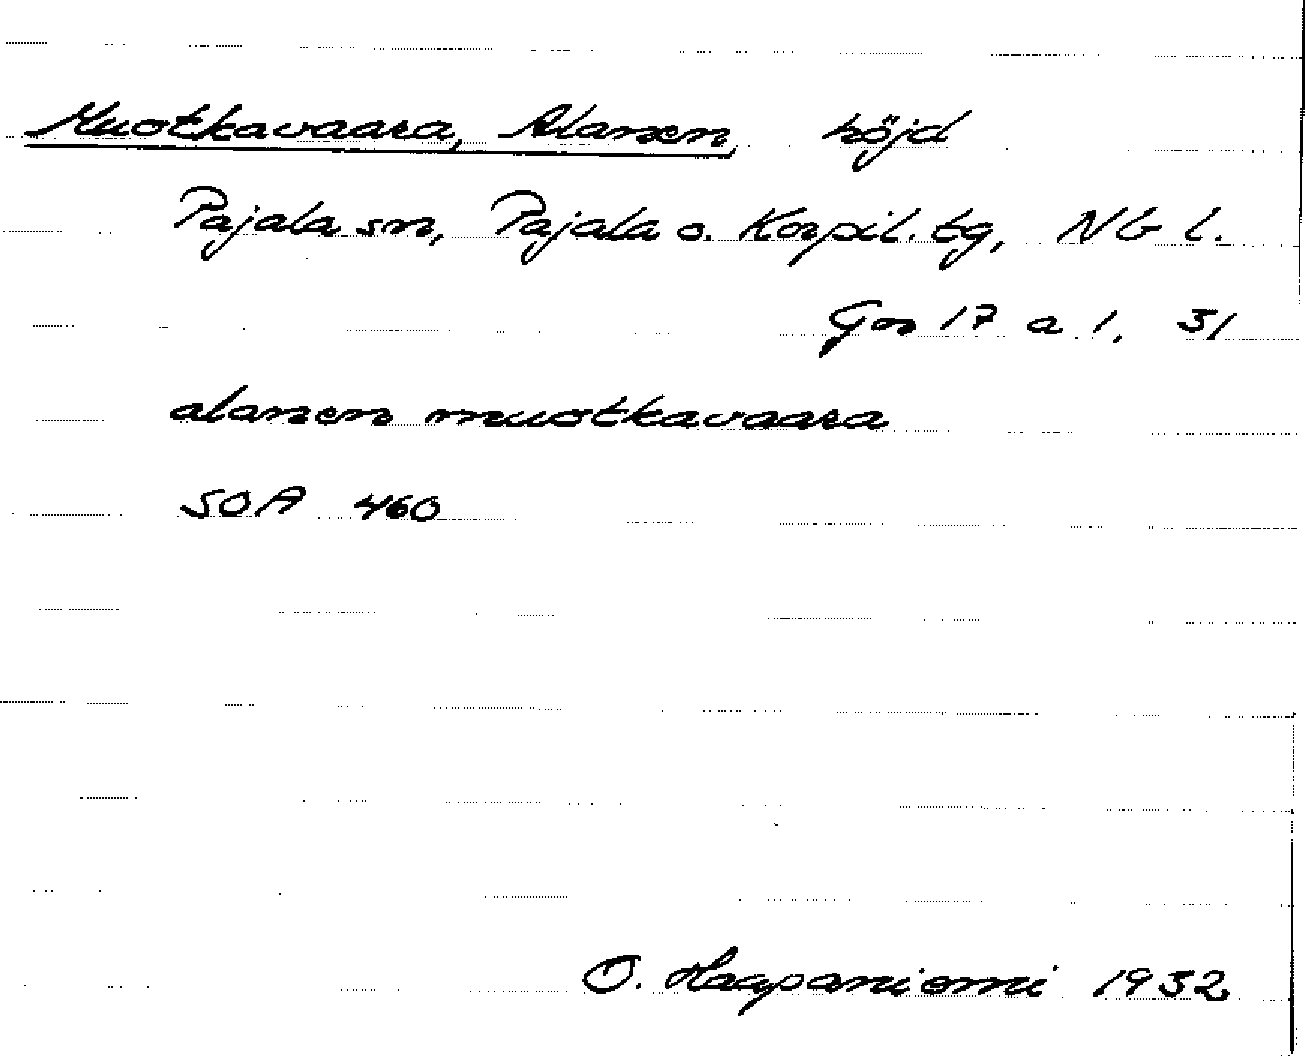 Muotkavaara, Alanen höjd
Pajala sn, Pajala o. Korpil. tg, NB l.
Gor 17 a 1, 31
alanen muotkavaara
SOA 460
O. Haapaniemi 1932